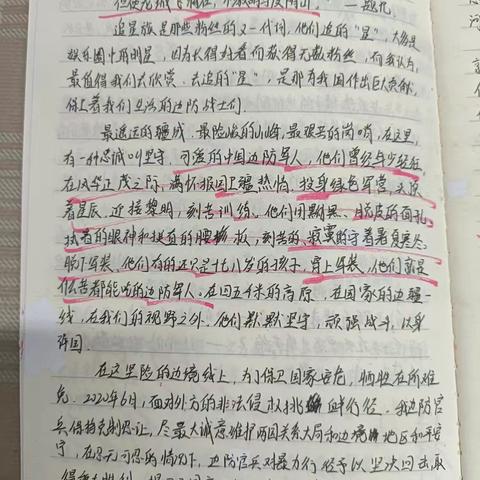 但使龙城飞将在，不教胡马度阴山。 ——题记
追星族是那些粉丝的又一代词，他们追的"星"，大多是
娱乐圈中的明星，因为长得好看而获得无数粉丝，而我认为，
最值得我们去欣赏、去追的"星"，是那为我国作出巨大贡献，
保卫着我们卫冕的边防战士们。
最遥远的疆域，最险峻的山峰，最艰苦的岗哨，在这里，
有一种忠诚叫坚守。可爱的中国边防军人，他们曾经年少轻狂，
在风华正茂之际，满怀报国卫疆热情，投身绿色军营，头顶
着星辰，迎接黎明，刻苦训练。他们用黝黑、脱皮的面孔，
执着的眼神和挺直的腰板，刻苦的、寂寞的守着暑夏寒冬。
脱下军装，他们有的还只是十七八岁的孩子，穿上军装，他们就是
什么苦都能吃的边防军人。在四五千米的高原，在国家的边疆一
线，在我们的视野之外，他们默默坚守，顽强战斗，以身
许国。
在这里险的边境线上，为了保卫国家安危，牺牲在所难
免。2020年6月，面对外方的非法侵权挑衅行径，我边防官
兵保持克制忍让，尽最大诚意维护两国关系大局和边境地区和平安
宁，在忍无可忍的情况下，边防官兵对暴力行径予以坚决回击，取